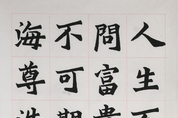 人生
問富貴
不可期
海尊